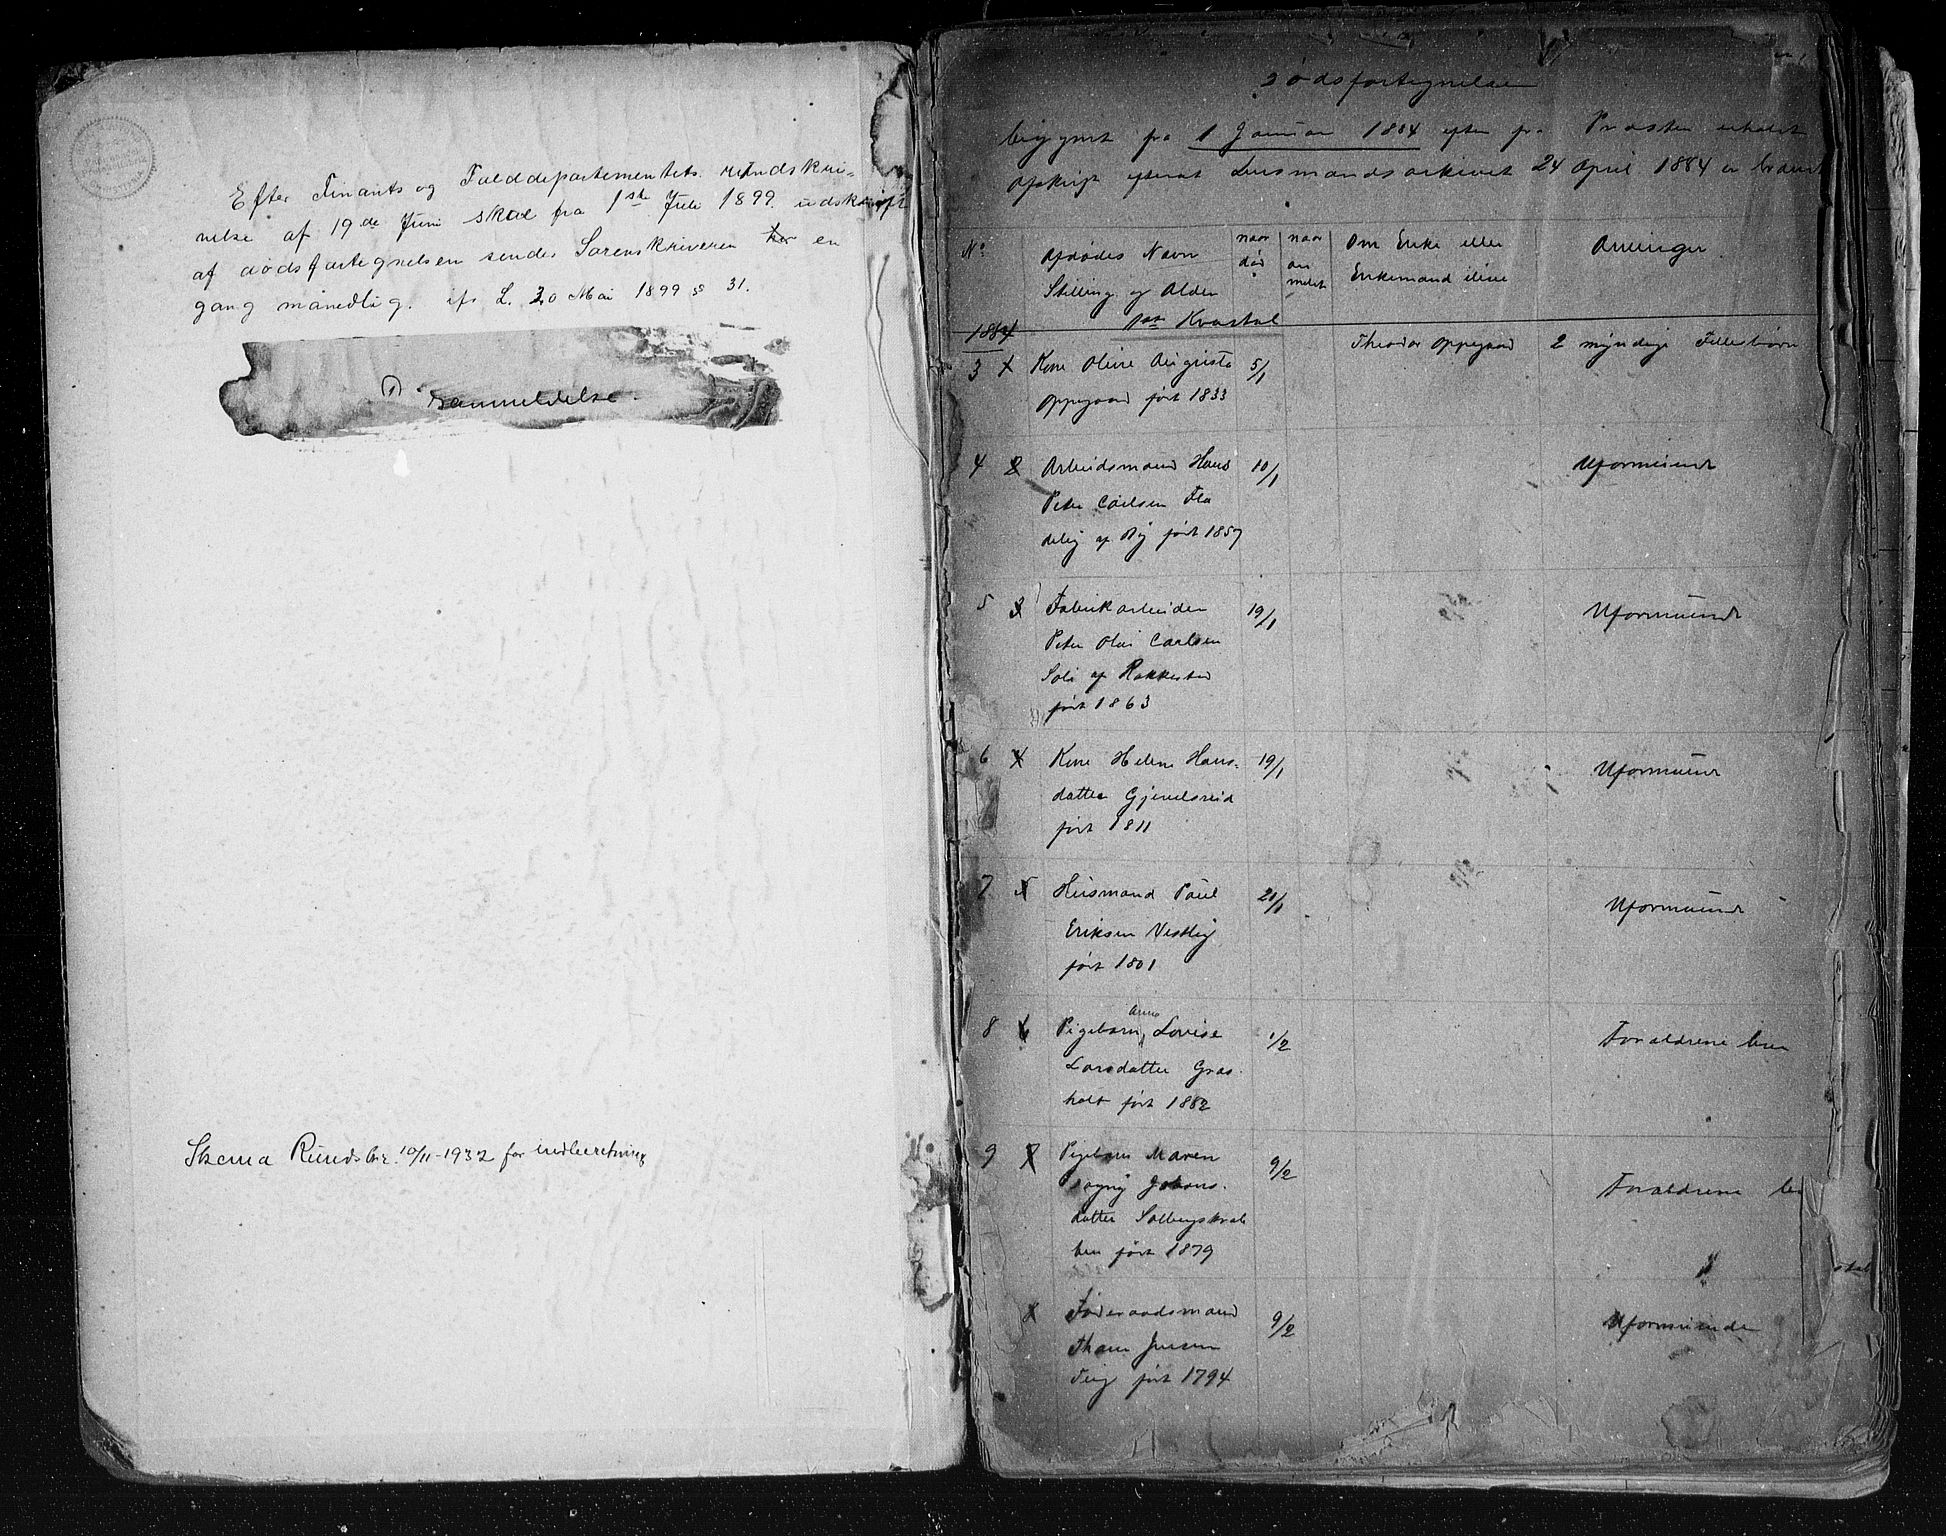 Efter Finants og Tolddepartementets rundskri-
velse af 19de Juni skal fra 1ste Juli 1899 udskrift
af dødsfortegnelsen sendes Sorenskriveren en
gang månedlig. jfr L. 20 Mai 1899 § 31.
Skema Rundskr. 10/11-1932 for indberetning
Dødsfortegnelse
begynt fra 1 Januar 1884 efter fra Præsten erholdt
afskrift efterat Lensmandsarkivet 24 April 1884 er brændt
No
Afdødes Navn
Stilling og Alder
naar
død
naar
an
meldt
Om Enke eller
Enkemand i live
Arvinger
1884
1ste Kvartal
3 Kone Oline Augusta
Oppegaard født 1833
5/1
Theodor Oppegaard
2 myndige Fellesbørn
4 2 Arbeidsmand Hans
Peter Carlsen Fla
deby af Ry født 1857
10/1
Uformuende
5 3 Fabrikarbeider
Peter Olai Carlsen
Soli af Rakkestad
født 1863
19/1
Uformuende
6 4 Kone Helene Hans-
datter Gjevelsreid
født 1811
19/1
Uformuende
7 5 Husmand Paul
Eriksen Vestby
født 1801
21/1
Uformuende
8 6 Pigebarn Anna Lovise
Larsdatter Gras-
holt født 1882
1/2
Forældrene lever
9 7 Pigebarn Maren
Dagny Johans-
datter Solbergskrab
ben født 1879
9/2
Forældrene lev
8 Føderaadsmand
Jensen
født 1794
9/2
Uformuende